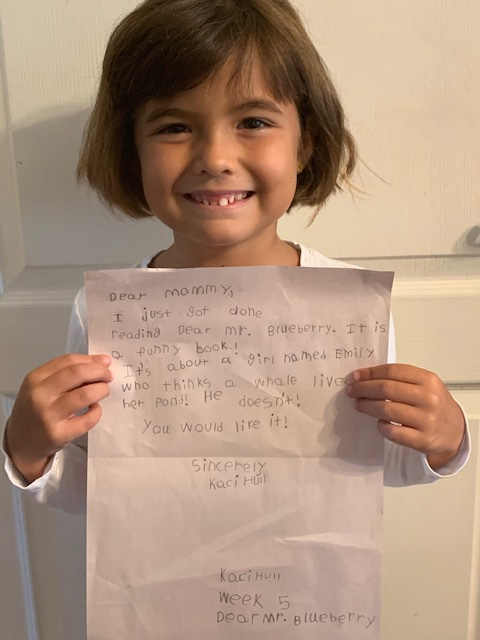 Dear mommy,
I just got done
reading Dear mr. Blueberry. It is
a funny book.!
It's about a girl named Emily
who thinks a whale live
her pond! He doesn't!
You would like it!
Sincerely
Kaci Hull
Kaci Hull
Week 5
Dear Mr. Blueberry